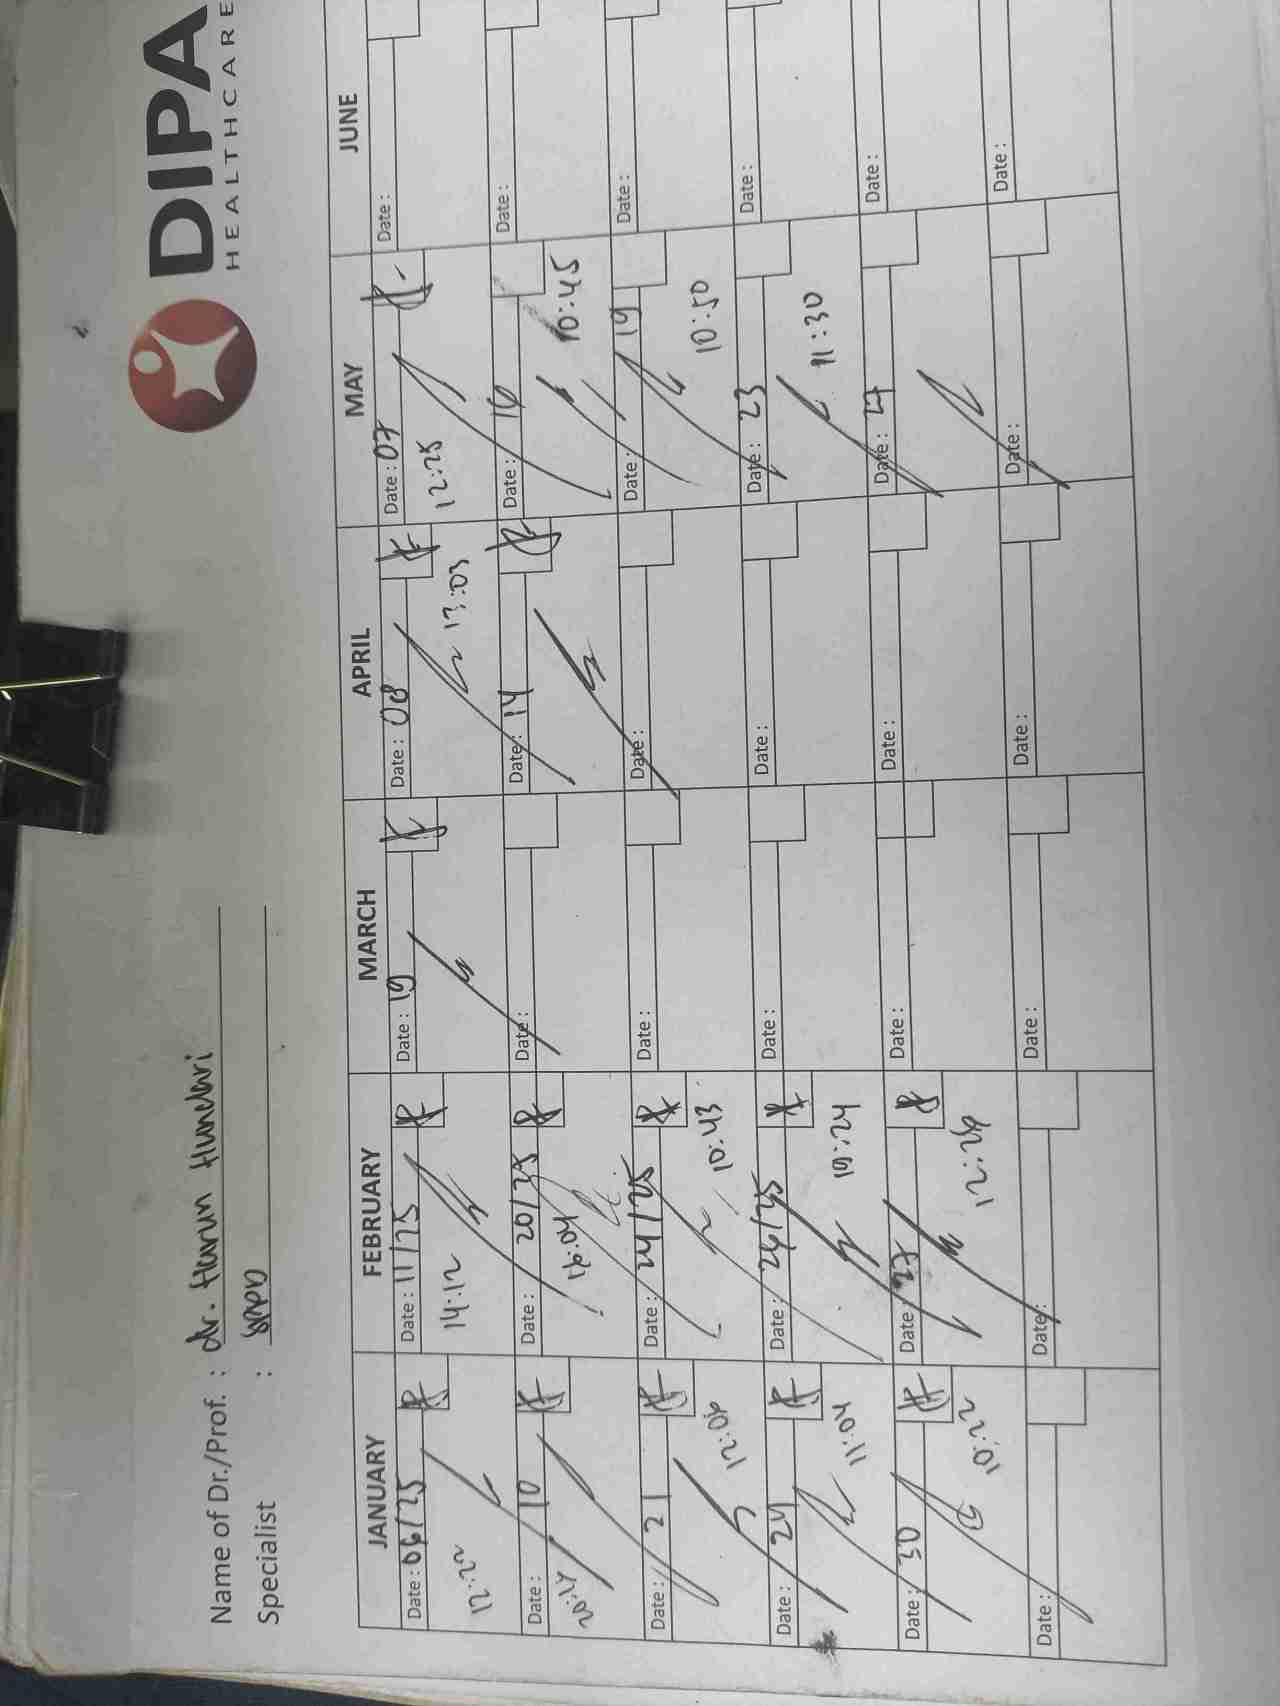 DIPA
HEALTHCARE
Name of Dr./Prof. : dr. Harun Hundari
Specialist :
JANUARY FEBRUARY MARCH APRIL MAY JUNE
Date : 06/25 Date : 11/25 Date : 19 Date : 08 Date : 07 Date :
12:22 14:12 13:03 12:25
Date : 10 Date : 20/25 Date : Date : 14 Date : 16 Date :
20:14 16:04 10:45
Date : 21 Date : 24/25 Date : Date : Date : 19 Date :
12:06 10:43 10:50
Date : 24 Date : 26/25 Date : Date : Date : 23 Date :
11:04 10:24 11:30
Date : 30 Date : 27 Date : Date : Date : 27 Date :
10:22 12:28
Date : Date : Date : Date : Date : Date :